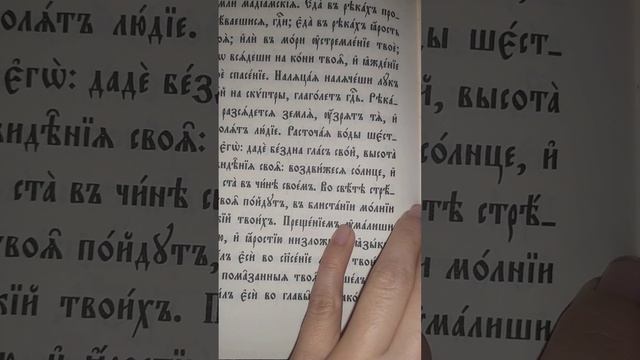 ли мадїа́мскїѧ. Еда̀ въ рѣка́хъ про-
ѣ́ваешисѧ, гдⷭ҇и; еда̀ въ рѣка́хъ ꙗ́рость
ѧ̀; и҆лѝ въ мо́ри ᲂу҆стремле́нїе твоѐ;
ѡ всѧ́деши на ко́ни твоѧ̑, и҆ ꙗ҆жде́нїе
оѐ спасе́нїе. Налѧца́ѧ налѧче́ши лу́къ
й на ски́птры, глаго́летъ гдⷭ҇ь. Рѣка́-
разсѧ́детсѧ землѧ̀, ᲂу҆́зрѧтъ тѧ̀, и҆
олѧ́тъ лю́дїе. Расточа́ѧ во́ды ше́ст-
є҆гѡ̀: дадѐ бе́здна гла́съ сво́й, высота̀
идѣ̑нїѧ своѧ̑: воздви́жесѧ со́лнце, и҆
ста̀ въ чи́нѣ свое́мъ. Во свѣ́тѣ стрѣ̑-
воѧ̑ по́йдутъ, въ блиста́нїи мо́лнїи
жїй твои́хъ. Преще́нїемъ ᲂу҆ма́лиши
ю, и҆ ꙗ́ростїю низложи́
лъ є҆сѝ во спⷭ҇е́нїе
пома̑занныѧ твоѧ̑
лъ є҆сѝ во главы̑